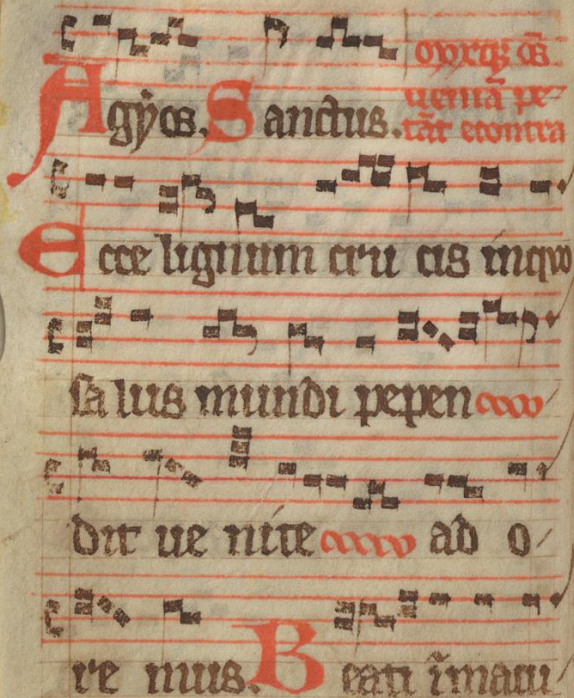 ueniā pe-
Agẏos. Sanctus. tāt econtra
Ecce lignum cru cis inquo
sa lus mundi pepen
dit ue nite ad o
re mus. Beati īmacu